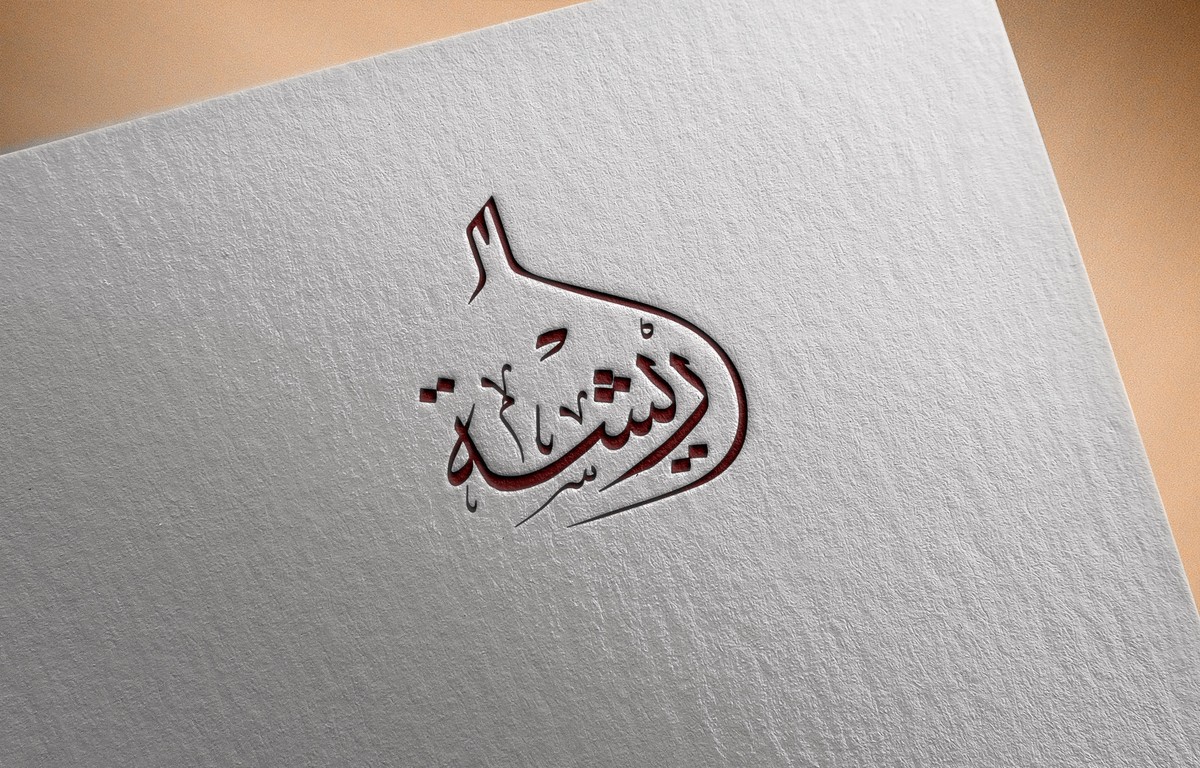 ريشة